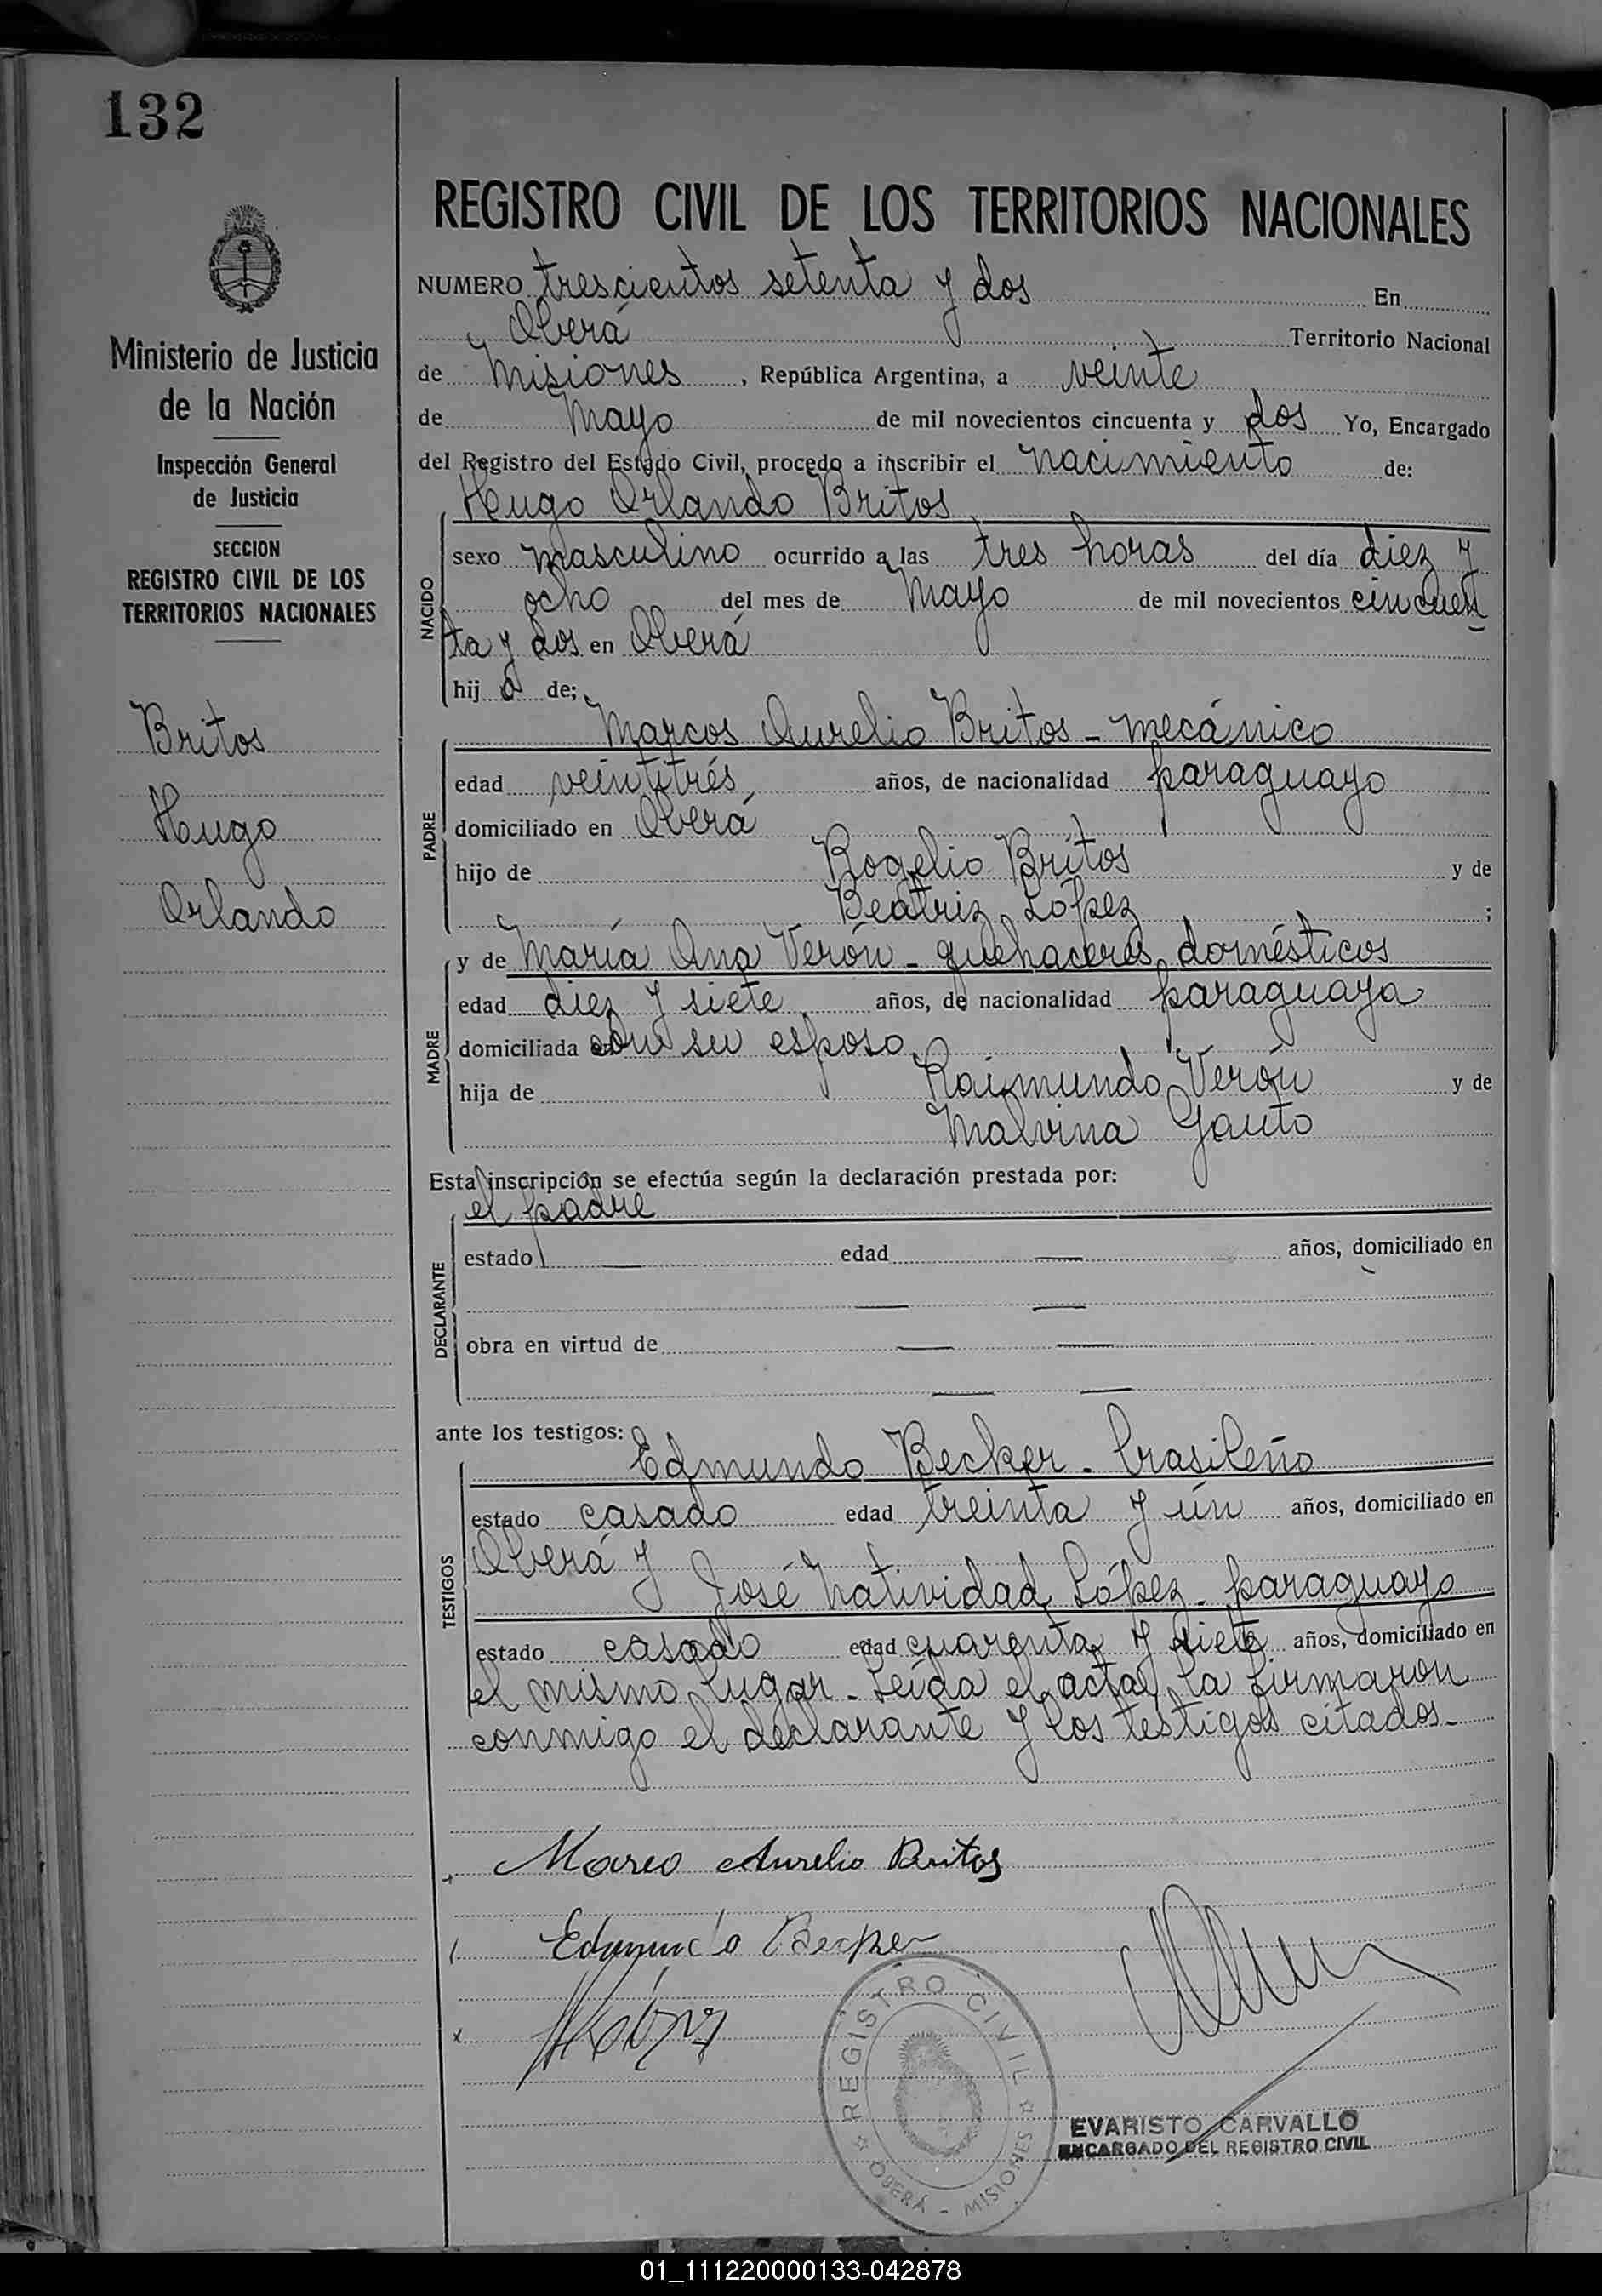 132
Ministerio de Justicia
de la Nación
Inspección General
de Justicia
SECCION
REGISTRO CIVIL DE LOS
TERRITORIOS NACIONALES
Britos
Hugo
Orlando
REGISTRO CIVIL DE LOS TERRITORIOS NACIONALES
NUMERO trescientos setenta y dos En
Oberá Territorio Nacional
de Misiones, República Argentina, a veinte
de Mayo de mil novecientos cincuenta y dos Yo, Encargado
del Registro del Estado Civil, procedo a inscribir el nacimiento de:
Hugo Orlando Britos
NACIDO
sexo masculino ocurrido a las tres horas del día diez y
ocho del mes de Mayo de mil novecientos cincuen
ta y dos en Oberá
hijo de;
Marcos Aurelio Britos - mecánico
PADRE
edad veintitrés años, de nacionalidad paraguayo
domiciliado en Oberá
hijo de Rogelio Britos y de
Beatriz López ;
y de María Ana Verón - quehaceres domésticos
MADRE
edad diez y siete años, de nacionalidad paraguaya
domiciliada con su esposo
hija de Raimundo Verón y de
Malvina Gauto
Esta inscripción se efectúa según la declaración prestada por:
el padre
DECLARANTE
estado — edad — años, domiciliado en
— —
obra en virtud de — —
— —
ante los testigos:
Edmundo Becker - brasileño
TESTIGOS
estado casado edad treinta y ún años, domiciliado en
Oberá y
José Natividad López - paraguayo
estado casado edad cuarenta y siete años, domiciliado en
el mismo lugar - Leída el acta, la firmaron
conmigo el declarante y los testigos citados.-
Marco Aurelio Britos
Edmundo Becker
REGISTRO CIVIL
OBERÁ - MISIONES
EVARISTO CARVALLO
ENCARGADO DEL REGISTRO CIVIL
01_111220000133-042878